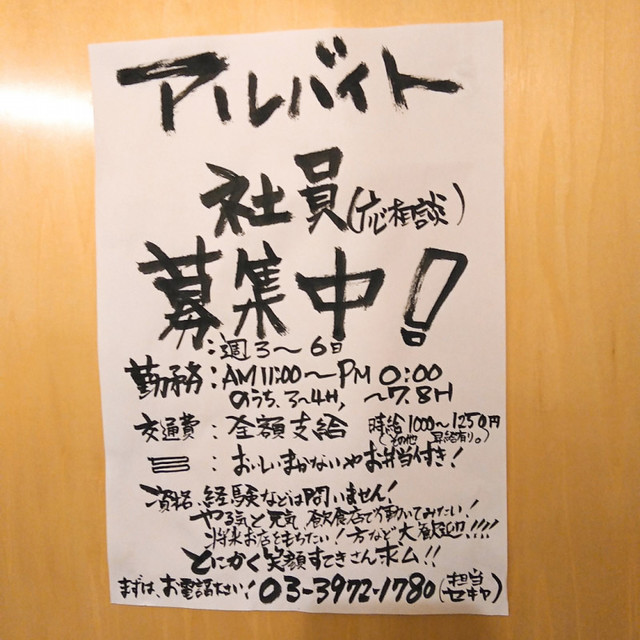 アルバイト
社員(応相談)
募集中!
:週3〜6日
勤務:AM11:00〜PM0:00
のうち、3〜4H, 〜7.8H
交通費:全額支給 時給1000〜1250円
(その他 昇給有り。)
:おいしいまかないやお弁当付き!
資格、経験などは問いません!
やる気と元気、飲食店で働いてみたい!
将来お店をもちたい!方など大歓迎!!!!
とにかく笑顔すてきさん求ム!!
まずは、お電話ください!03-3972-1780(担当
セキヤ)